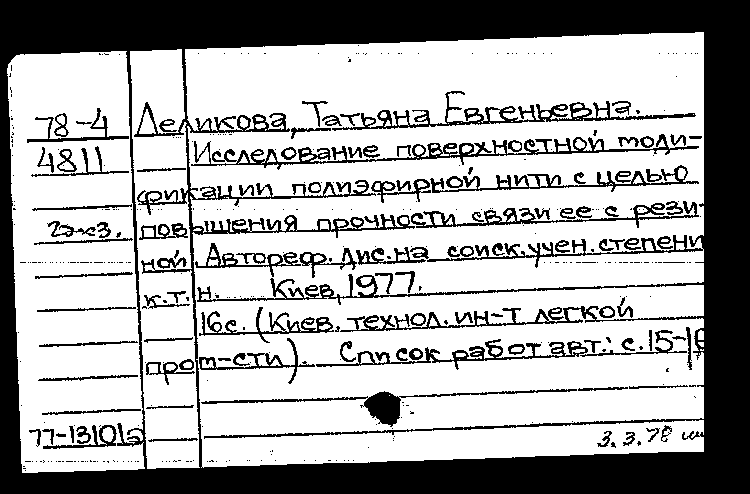 78-4 Деликова, Татьяна Евгеньевна.
4811 Исследование поверхностной моди-
фикации полиэфирной нити с целью
2экз. повышения прочности связи ее с рези-
ной. Автореф. дис. на соиск. учен. степени
к.т.н. Киев, 1977.
16с. (Киев. технол. ин-т легкой
пром-сти). Список работ авт.: с.15-16
77-13101
3.3.78